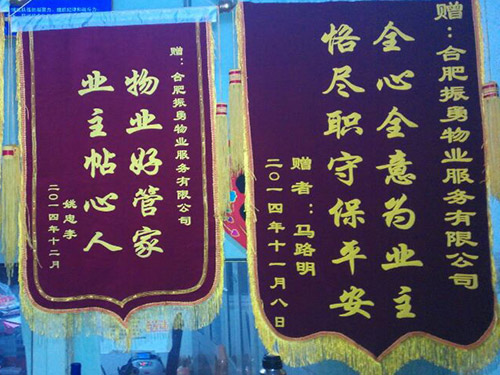 赠：合肥振勇物业服务有限公司
物业好管家
业主帖心人
姚忠李
二〇一四年十二月
赠：合肥振勇物业服务有限公司
全心全意为业主
恪尽职守保平安
赠者：马路明
二〇一四年十一月八日